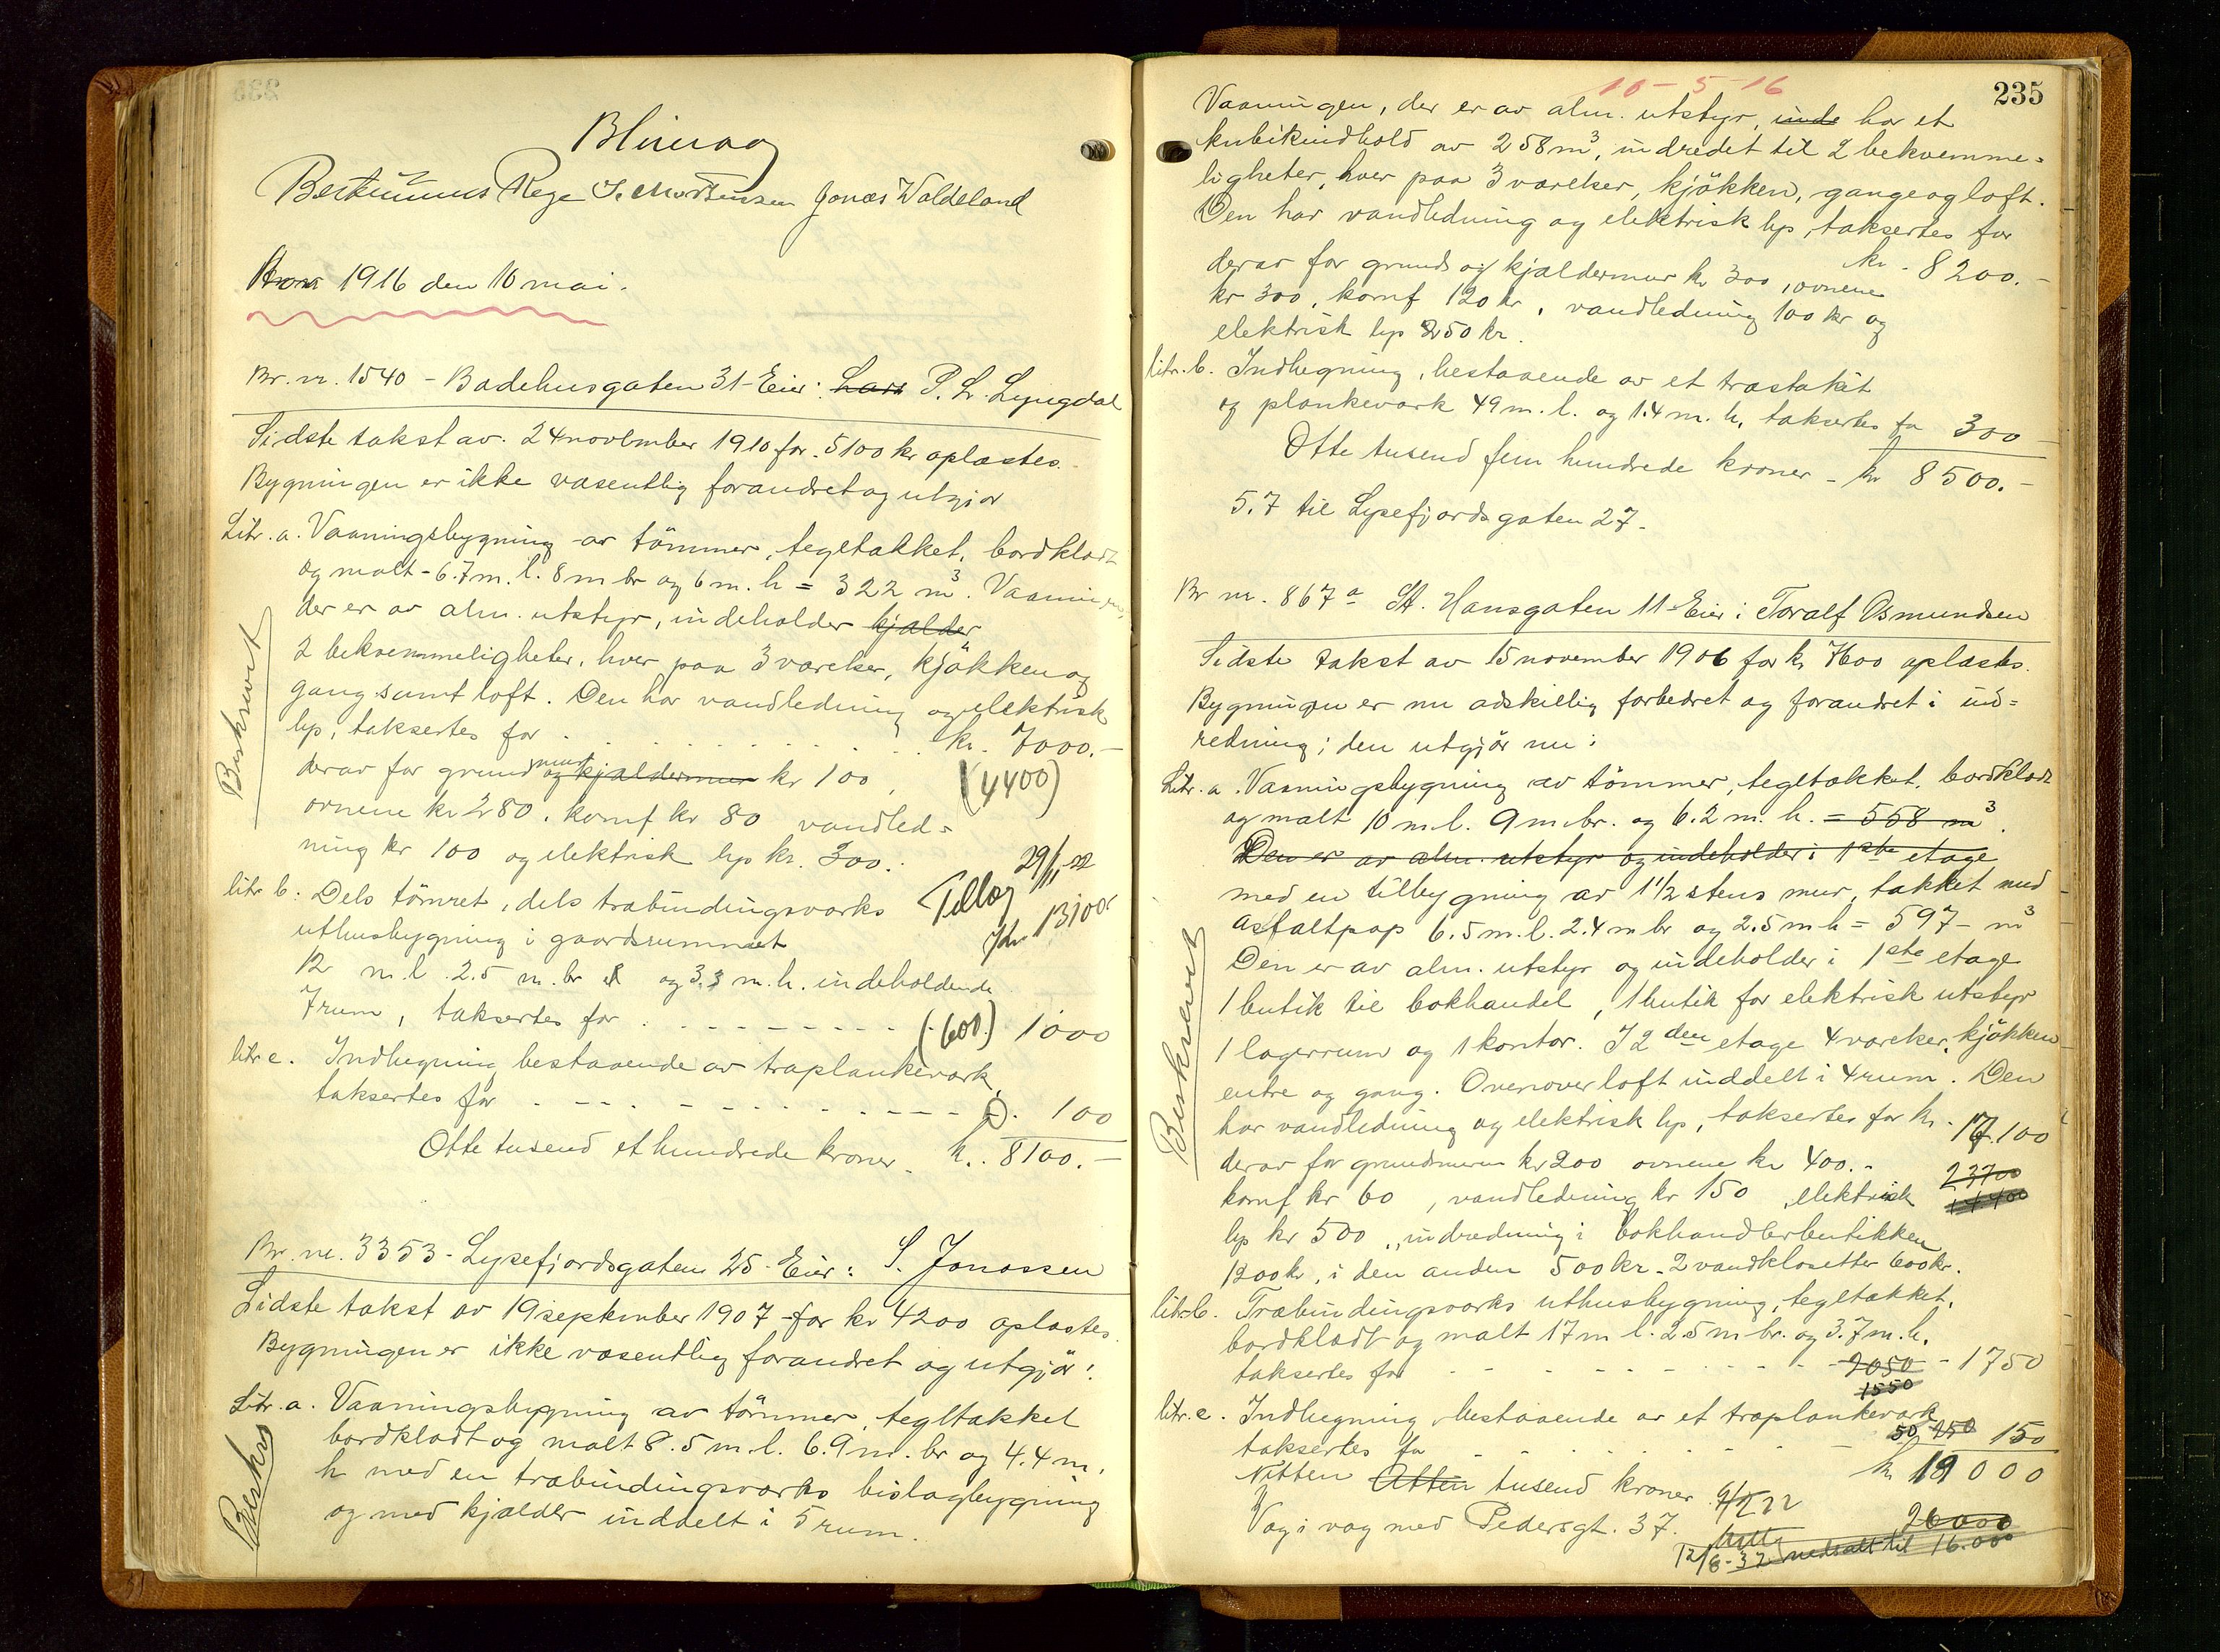 Rege S. Mortensen Jonas Waldeland
1916 den 10 mai.
Br. nr. 1540 - Badehusgaten 31 - Eier: Lars P. L. Lyngdal
Sidste takst av 24 november 1910 for 5100 kr oplæstes.
Bygningen er ikke væsentlig forandret og utgjør
Litr. a. Vaaningsbygning av tömmer, tegltækket, bordklædt
og malt - 6.7 m. l. 8 m br og 6 m. h = 322 m³. Vaaningen,
der er av alm. utstyr, indeholder kjælder
2 bekvemmeligheter, hver paa 3 værelser, kjökken og
gang samt loft. Den har vandledning og elektrisk
lys, taksertes for . . . . . . kr. 7000.-
derav for grundmur og kjældermur kr 100, (4400)
ovnene kr 280, komf kr 80 vandled-
ning kr 100 og elektrisk lys kr. 300.
29/11-22
Tillæg
Kr. 13100
litr b. Dels tömret, dels træbindingsværks
uthusbygning i gaardsrummet
12 m. l. 2.5 m. br og 3.3 m. h. indeholdende
7 rum, taksertes for . - - - - - - - (600) 1000
litr c. Indhegning bestaaende av træplankeværk,
taksertes for - - - - - - - - 100
Otte tusend et hundrede kroner. kr. 8100.-
Beskrevet
Br. nr. 3353 - Lysefjordsgaten 25 - Eier: S. Jonassen
Sidste takst av 19 september 1907 for kr 4200 oplæstes.
Bygningen er ikke væsentlig forandret og utgjör:
Litr. a. Vaaningsbygning av tömmer, tegltækket
bordklædt og malt 8.5 m. l. 6.9 m. br og 4.4 m.
h med en træbindingsværks bislagbygning
og med kjælder inddelt i 5 rum.
Beskrev
10-5-16
235
Vaaningen, der er av alm. utstyr, inde har et
kubikindhold av 258 m³, indredet til 2 bekvemme-
ligheter, hver paa 3 værelser, kjökken, gange og loft.
Den har vandledning og elektrisk lys, taksertes for
kr. 8200.-
derav for grund og kjældermur kr 300, ovnene
kr 300, komf 120 kr, vandledning 100 kr og
elektrisk lys 250 kr.
litr. b. Indhegning, bestaaende av et træstakit
og plankeværk 49 m. l. og 1.4 m. h, taksertes for 300 -
Otte tusend fem hundrede kroner - kr 8500.-
5.7 til Lysefjordsgaten 27.
Br nr. 867a St. Hansgaten 11 - Eier: Toralf Osmundsen
Sidste takst av 15 november 1906 for kr 7600 oplæstes.
Bygningen er nu adskillig forbedret og forandret i ind-
redning; den utgjör nu:
Litr. a. Vaaningsbygning av tömmer, tegltækket, bordklædt
og malt 10 m. l. 9 m. br. og 6.2 m. h. = 558 m³.
Den er av alm. utstyr og indeholder i 1ste etage
med en tilbygning av 1 1/2 stens mur, tækket med
asfaltpap 6.5 m. l. 2.4 m br og 2.5 m h = 597 - m³
Den er av alm. utstyr og indeholder i 1ste etage
1 butik til bokhandel, 1 butik for elektrisk utstyr
1 lagerrum og 1 kontor. I 2den etage 4 værelser, kjökken
entre og gang. Ovenover loft inddelt i 4 rum. Den
har vandledning og elektrisk lys, taksertes for kr. 17.100
derav for grundmuren kr 200 ovnene kr 400.- 23700
komf kr 60, vandledning kr 150, elektrisk 14400
lys kr 500, indredning i bokhandlerbutikken
1200 kr, i den anden 500 kr - 2 vandklosetter 600 kr.
litr. b. Træbindingsværks uthusbygning, tegltækket,
bordklædt og malt 17 m l. 2.5 m br. og 3.7 m. h.
taksertes for - - - - - - 2050 - 1750
1550
litr. c. Indhegning, bestaaende av et træplankeværk
taksertes for - - - - - 50 250 150
Nitten Atten tusend kroner kr 19000
Væg i væg med Pedersgt. 37. 26000
12/8-32 nedsatt til 16.000
Beskrevet